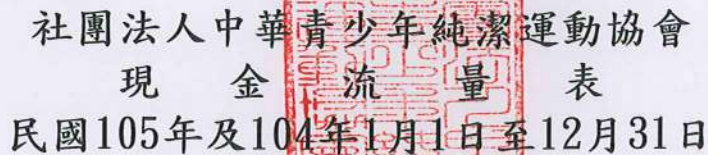 社團法人中華青少年純潔運動協會
現金流量表
民國105年及104年1月1日至12月31日